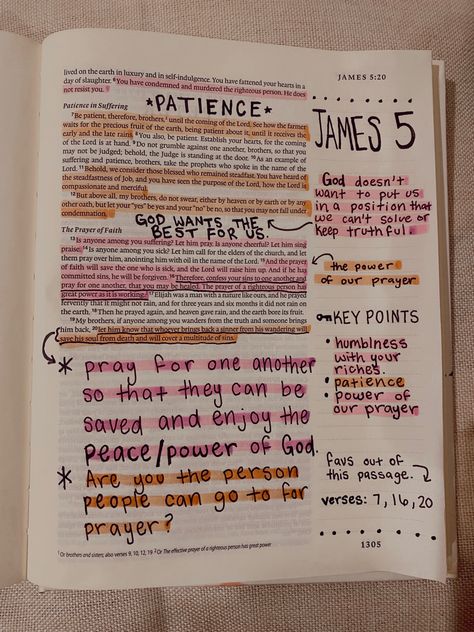 JAMES 5:20
lived on the earth in luxury and in self-indulgence. You have fattened your hearts in a
day of slaughter. 6 You have condemned and murdered the righteous person. He does
not resist you.
*PATIENCE*
Patience in Suffering
7 Be patient, therefore, brothers,1 until the coming of the Lord. See how the farmer
waits for the precious fruit of the earth, being patient about it, until it receives the
early and the late rains. 8 You also, be patient. Establish your hearts, for the coming
of the Lord is at hand. 9 Do not grumble against one another, brothers, so that you
may not be judged; behold, the Judge is standing at the door. 10 As an example of
suffering and patience, brothers, take the prophets who spoke in the name of the
Lord. 11 Behold, we consider those blessed who remained steadfast. You have heard of
the steadfastness of Job, and you have seen the purpose of the Lord, how the Lord is
compassionate and merciful.
12 But above all, my brothers, do not swear, either by heaven or by earth or by any
other oath, but let your "yes" be yes and your "no" be no, so that you may not fall under
condemnation.
GOD WANTS THE
BEST FOR US.
The Prayer of Faith
13 Is anyone among you suffering? Let him pray. Is anyone cheerful? Let him sing
praise. 14 Is anyone among you sick? Let him call for the elders of the church, and let
them pray over him, anointing him with oil in the name of the Lord. 15 And the prayer
of faith will save the one who is sick, and the Lord will raise him up. And if he has
committed sins, he will be forgiven. 16 Therefore, confess your sins to one another and
pray for one another, that you may be healed. The prayer of a righteous person has
great power as it is working.2 17 Elijah was a man with a nature like ours, and he prayed
fervently that it might not rain, and for three years and six months it did not rain on
the earth. 18 Then he prayed again, and heaven gave rain, and the earth bore its fruit.
19 My brothers, if anyone among you wanders from the truth and someone brings
him back, 20 let him know that whoever brings back a sinner from his wandering will
save his soul from death and will cover a multitude of sins.
* pray for one another
so that they can be
saved and enjoy the
peace/power of God.
* Are you the person
people can go to for
prayer?
1 Or brothers and sisters; also verses 9, 10, 12, 19 2 Or The effective prayer of a righteous person has great power
JAMES 5
God doesn't
want to put us
in a position that
we can't solve or
keep truthful.
the power
of our prayer
KEY POINTS
• humblness
with your
riches.
• patience
• power of
our prayer
favs out of
this passage.
verses: 7, 16, 20
1305